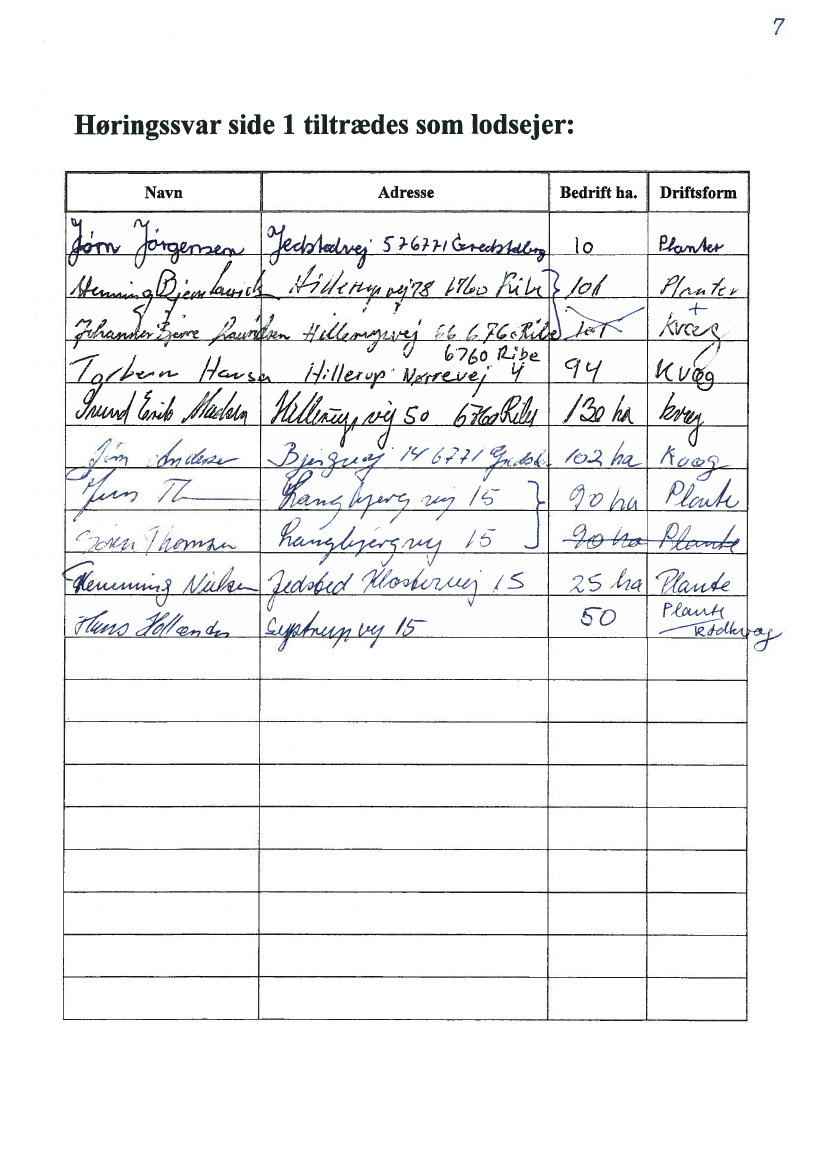 7
Høringssvar side 1 tiltrædes som lodsejer:
Navn Adresse Bedrift ha. Driftsform
Jørn Jørgensen Jedstedvej 57 6771 Gredstedbro 10 Planter
Henning Bjerre Hillerupvej 78 6760 Ribe 101 Planter
+
Johannes Bjerre Lauridsen Hillerupvej 66 6760 Ribe 101 Kvæg
6760 Ribe
Torbern Hansen Hillerup Nørrevej 4 94 Kvæg
Svend Erik Madsen Hillerupvej 50 6760 Ribe 130 ha kvæg
Jørn Andersen 14 6771 102 ha Kvæg
Jens Langbjergvej 15 90 ha Plante
Søren Thomsen Langbjergvej 15 90 ha Plante
Flemming Nielsen Jedsted Klostervej 15 25 ha Plante
Hans Hollænder 15 50 Plante
kødkvæg